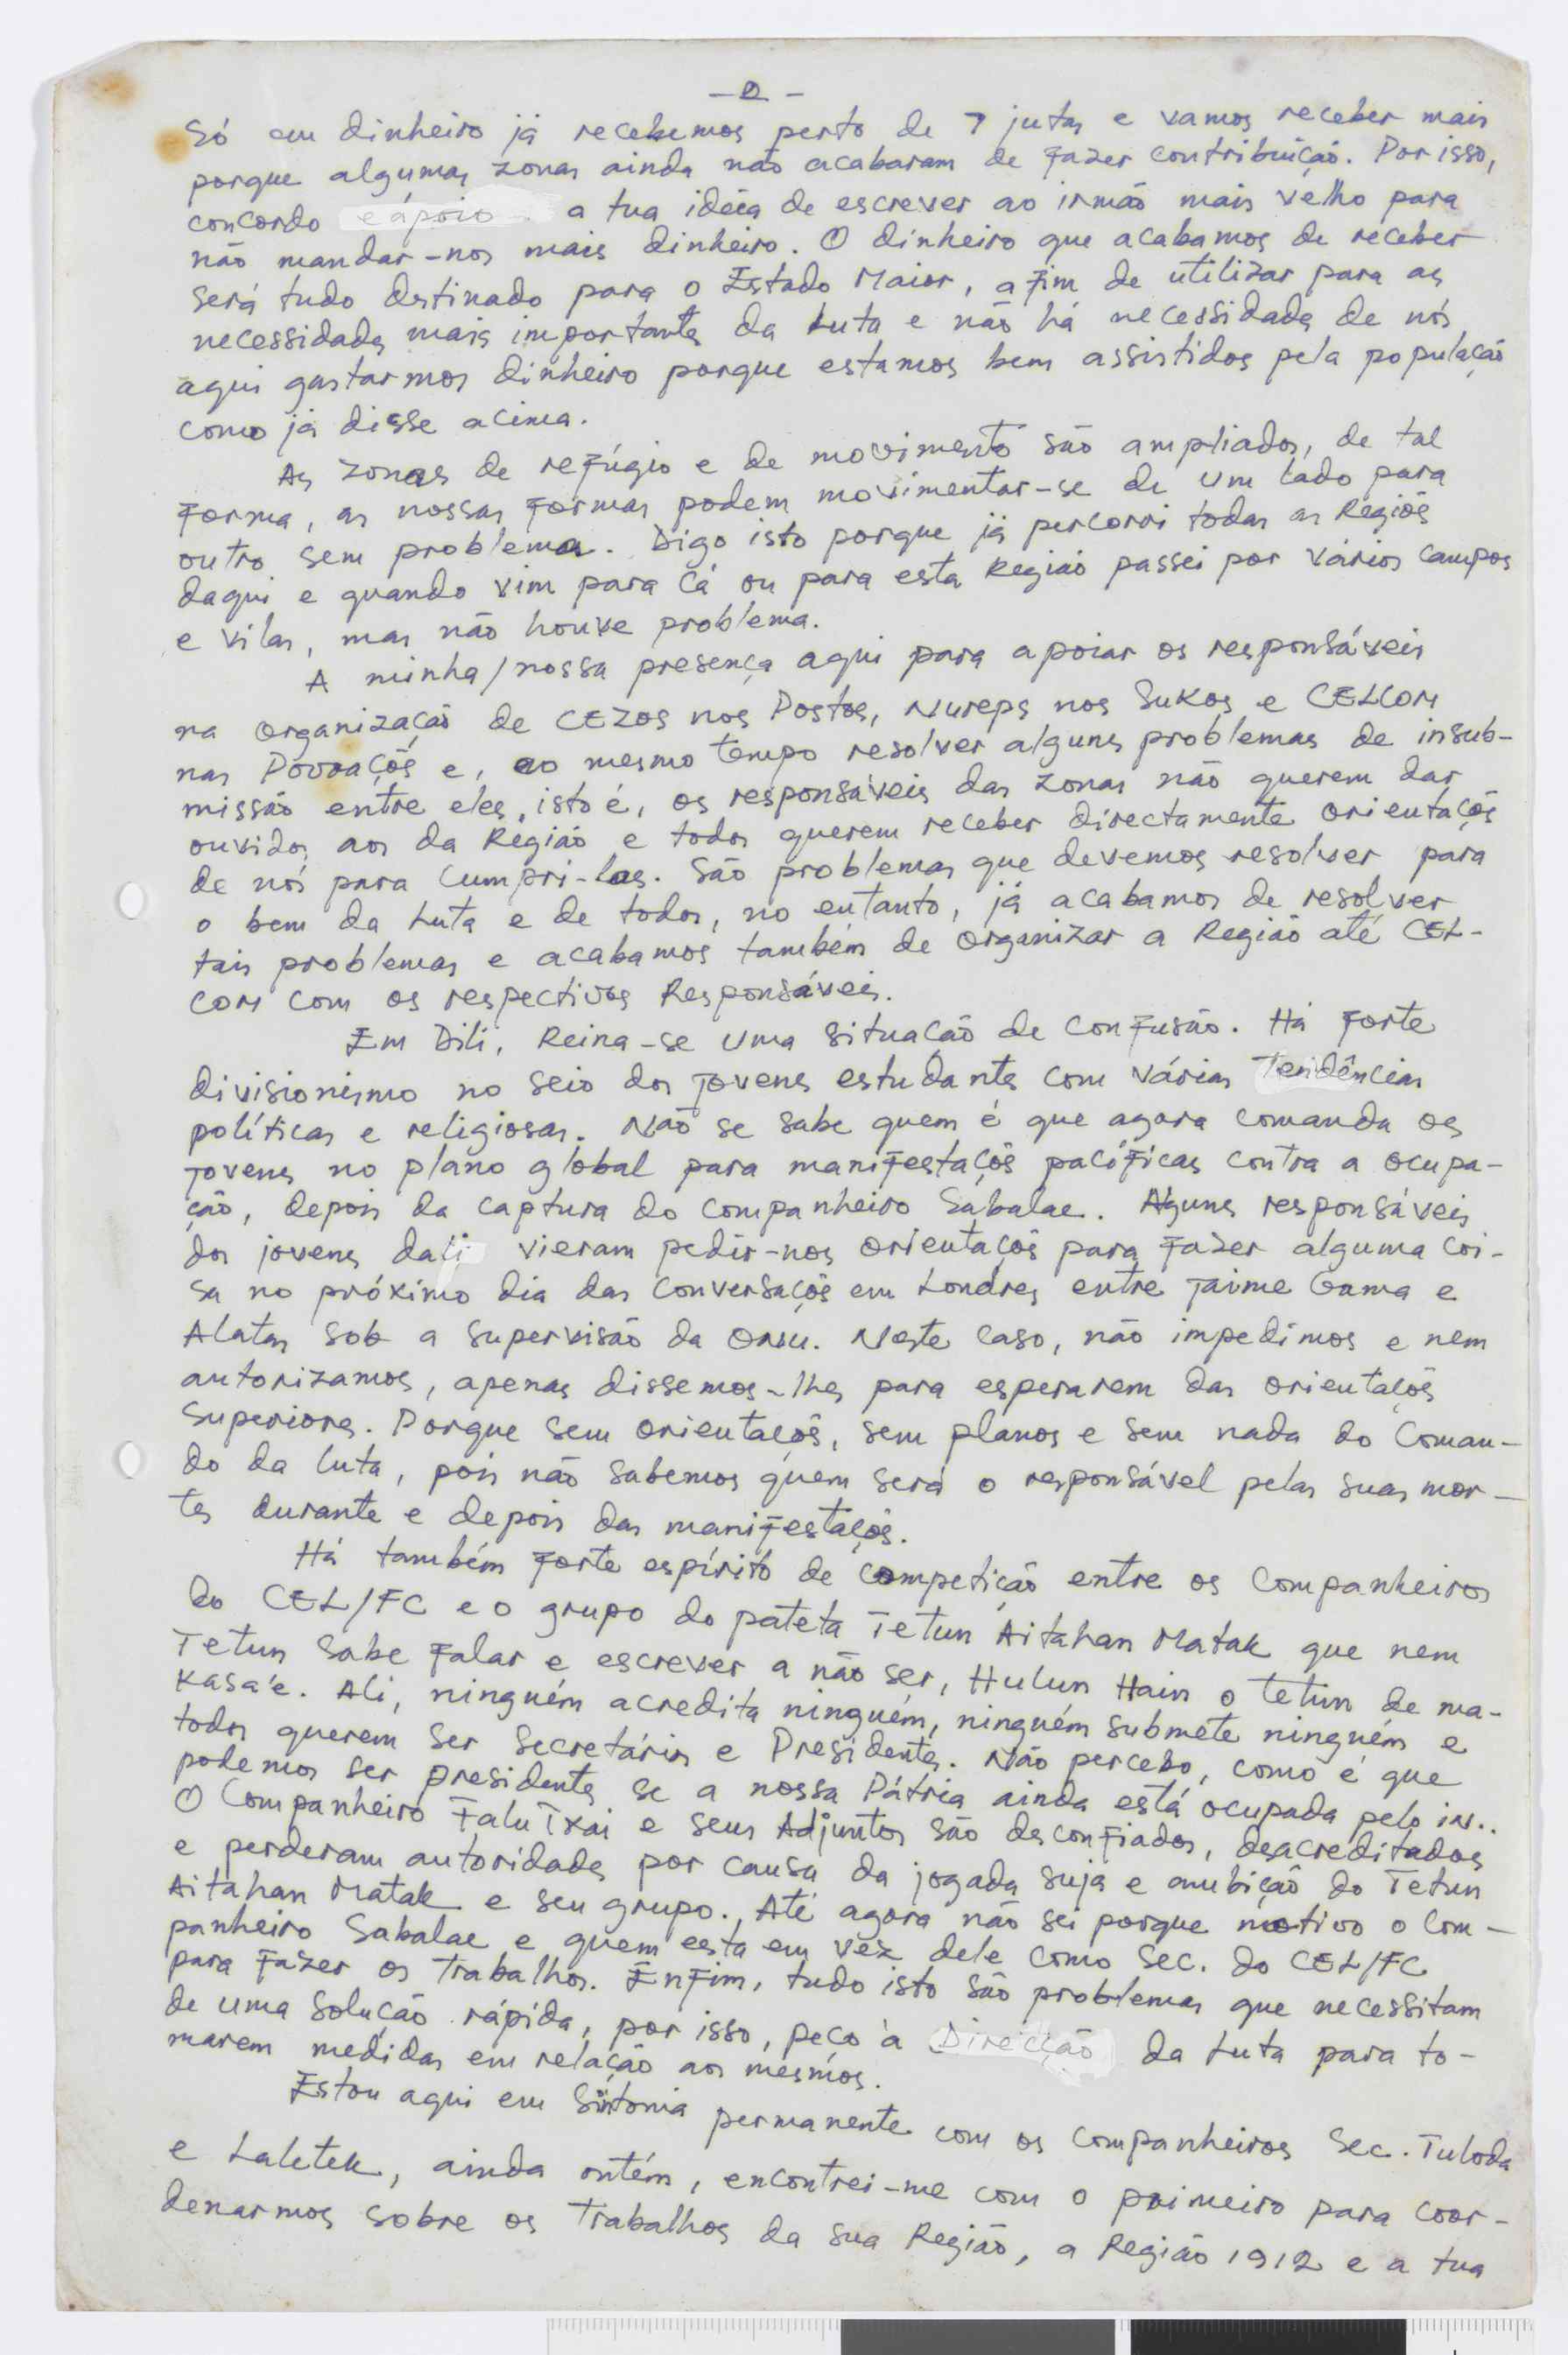 - 2 -
Só em dinheiro já recebemos perto de 7 jutas e vamos receber mais
porque algumas zonas ainda não acabaram de fazer contribuição. Por isso,
concordo e apoio a tua idéia de escrever ao irmão mais velho para
não mandar-nos mais dinheiro. O dinheiro que acabamos de receber
será tudo destinado para o Estado Maior, a fim de utilizar para as
necessidades mais importantes da Luta e não há necessidade de nós
aqui gastarmos dinheiro porque estamos bem assistidos pela população
como já disse acima.
As zonas de refúgio e de movimento são ampliados, de tal
forma, as nossas formas podem movimentar-se de um lado para
outro sem problema. Digo isto porque já percorri todas as Regiões
daqui e quando vim para cá ou para esta Região passei por vários campos
e vilas, mas não houve problema.
A minha/nossa presença aqui para apoiar os responsáveis
na organização de CEZOS nos Postos, Nureps nos Sukos e CELCOM
nas Povoações e, ao mesmo tempo resolver alguns problemas de insub-
missão entre eles, isto é, os responsáveis das zonas não querem dar
ouvidos aos da Região e todos querem receber directamente orientações
de nós para cumpri-las. São problemas que devemos resolver para
o bem da Luta e de todos, no entanto, já acabamos de resolver
tais problemas e acabamos também de organizar a Região até CEL-
COM com os respectivos Responsáveis.
Em Dili, Reina-se uma situação de confusão. Há forte
divisionismo no seio dos jovens estudantes com várias Tendências
políticas e religiosas. Não se sabe quem é que agora comanda os
jovens no plano global para manifestações pacíficas contra a ocupa-
ção, depois da captura do companheiro Sabalae. Alguns responsáveis
dos jovens dali vieram pedir-nos orientações para fazer alguma coi-
sa no próximo dia das conversações em Londres entre Jaime Gama e
Alatas sob a supervisão da ONU. Neste caso, não impedimos e nem
autorizamos, apenas dissemos-lhes para esperarem das orientações
superiores. Porque sem orientações, sem planos e sem nada do Coman-
do da luta, pois não sabemos quem será o responsável pelas suas mor-
tes durante e depois das manifestações.
Há também forte espírito de competição entre os companheiros
do CEL/FC e o grupo do pateta Tetun Aitahan Matak que nem
Tetun sabe falar e escrever a não ser, Hulun Hain o tetun de ma-
kasa'e. Ali, ninguém acredita ninguém, ninguém submete ninguém e
todos querem ser Secretários e Presidentes. Não percebo, como é que
podemos ser presidentes se a nossa Pátria ainda está ocupada pelo in..
O Companheiro Falu Txai e seus Adjuntos são desconfiados, desacreditados
e perderam autoridades por causa da jogada suja e ambição do Tetun
Aitahan Matak e seu grupo. Até agora não sei porque motivo o Com-
panheiro Sabalae e quem esta em vez dele como Sec. do CEL/FC
para fazer os trabalhos. Enfim, tudo isto são problemas que necessitam
de uma solução rápida, por isso, peço à Direcção da Luta para to-
marem medidas em relação aos mesmos.
Estou aqui em Sintonia permanente com os companheiros Sec. Tuloda
e Laletek, ainda ontém, encontrei-me com o primeiro para coor-
denarmos sobre os trabalhos da sua Região, a Região 1912 e a tua